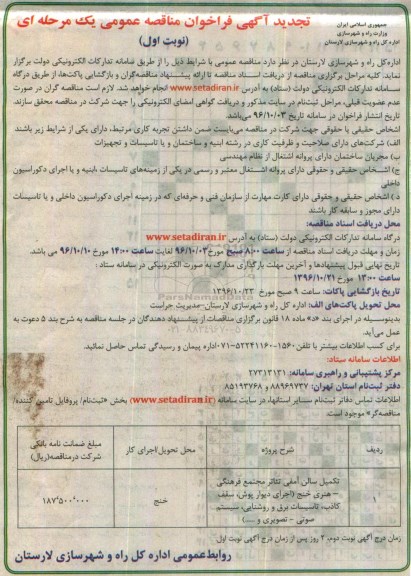 جمهوری اسلامی ایران
وزارت راه و شهرسازی
اداره کل راه و شهرسازی لارستان
تجدید آگهی فراخوان مناقصه عمومی یک مرحله ای
(نوبت اول)
اداره‌کل راه و شهرسازی لارستان در نظر دارد مناقصه عمومی با شرایط ذیل را از طریق سامانه تدارکات الکترونیکی دولت برگزار
نماید. کلیه مراحل برگزاری مناقصه از دریافت اسناد مناقصه تا ارائه پیشنهاد مناقصه‌گران و بازگشایی پاکت‌ها، از طریق درگاه
سامانه تدارکات الکترونیکی دولت (ستاد) به آدرس www.setadiran.ir انجام خواهد شد. لازم است مناقصه گران در صورت
عدم عضویت قبلی، مراحل ثبت‌نام در سایت مذکور و دریافت گواهی امضای الکترونیکی را جهت شرکت در مناقصه محقق سازند.
تاریخ انتشار فراخوان در سامانه تاریخ ۹۶/۱۰/۰۳ می‌باشد.
اشخاص حقیقی یا حقوقی جهت شرکت در مناقصه می‌بایست ضمن داشتن تجربه کاری مرتبط، دارای یکی از شرایط زیر باشند
الف) شرکت‌های دارای صلاحیت و ظرفیت کاری در رشته ابنیه و ساختمان و یا تاسیسات و تجهیزات
ب) مجریان ساختمان دارای پروانه اشتغال از نظام مهندسی
ج) اشخاص حقیقی و حقوقی دارای پروانه اشتغال معتبر و رسمی در یکی از زمینه‌های تاسیسات ،ابنیه و یا اجرای دکوراسیون
داخلی
د) اشخاص حقیقی و حقوقی دارای کارت مهارت از سازمان فنی و حرفه‌ای که در زمینه اجرای دکوراسیون داخلی و یا تاسیسات
دارای مجوز و سابقه کار باشند
محل دریافت اسناد مناقصه:
درگاه سامانه تدارکات الکترونیکی دولت (ستاد) به آدرس www.setadiran.ir
زمان و مهلت دریافت اسناد مناقصه از ساعت ۸:۰۰ صبح مورخ ۹۶/۱۰/۰۳ لغایت ساعت ۱۴:۰۰ مورخ ۹۶/۱۰/۱۰ می باشد.
تاریخ نهایی قبول پیشنهادها و آخرین مهلت بارگذاری مدارک به صورت الکترونیکی در سامانه ستاد :
ساعت ۱۳:۰۰ مورخ ۱۳۹۶/۱۰/۲۱
تاریخ بازگشایی پاکات: ساعت ۹ صبح مورخ ۱۳۹۶/۱۰/۲۳
محل تحویل پاکت‌های الف: اداره کل راه و شهرسازی لارستان-مدیریت حراست
بدینوسیله در اجرای بند «د» ماده ۱۸ قانون برگزاری مناقصات از پیشنهاد دهندگان در جلسه مناقصه به شرح بند ۵ دعوت به
عمل می‌آید.
برای کسب اطلاعات بیشتر با تلفن ۱۵۶۰-۵۲۲۴۱۱۶۰-۰۷۱ اداره پیمان و رسیدگی تماس حاصل نمائید.
اطلاعات سامانه ستاد:
مرکز پشتیبانی و راهبری سامانه: ۲۷۳۱۳۱۳۱
دفتر ثبت‌نام استان تهران: ۸۸۹۶۹۷۳۷ و ۸۵۱۹۳۷۶۸
اطلاعات تماس دفاتر ثبت‌نام سایر استانها، در سایت سامانه (www.setadiran.ir) بخش «ثبت‌نام/ پروفایل تامین کننده/
مناقصه‌گر» موجود است.
ردیف شرح پروژه محل تحویل/اجرای کار مبلغ ضمانت نامه بانکی شرکت درمناقصه(ریال)
۱ تکمیل سالن آمفی تئاتر مجتمع فرهنگی
– هنری خنج (اجرای دیوار پوش، سقف
کاذب، تاسیسات برق و روشنایی، سیستم
صوتی – تصویری و ....)
خنج ۱۸۷٬۵۰۰٬۰۰۰
زمان درج آگهی نوبت دوم، ۲ روز پس از زمان درج آگهی نوبت اول
روابط عمومی اداره کل راه و شهرسازی لارستان